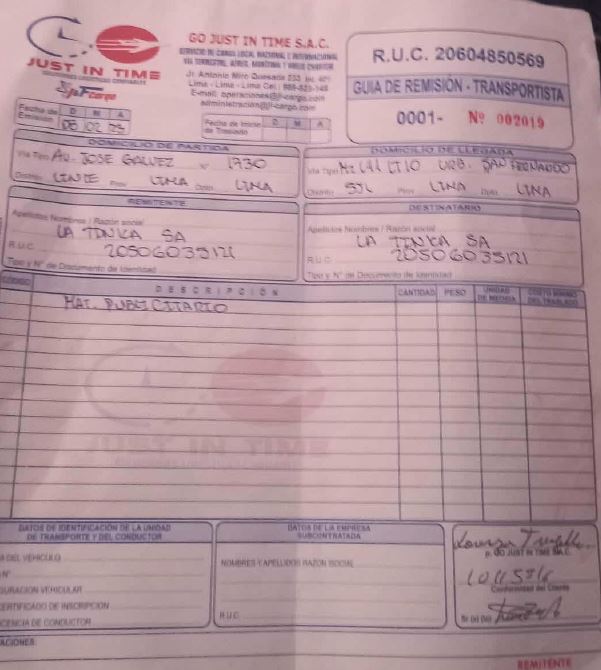 GO JUST IN TIME S.A.C.
SERVICIO DE CARGA LOCAL, NACIONAL E INTERNACIONAL
VIA TERRESTRE, AEREA, MARITIMA Y
Jr. Antonio Miro Quesada
Lima - Lima - Lima Cel.:
E-mail: operaciones@jl-cargo.com
administracion@jl-cargo.com
JUST IN TIME
cargo
R.U.C. 20604850569
GUIA DE REMISIÓN - TRANSPORTISTA
0001- Nº 002019
Fecha de Emisión D M A
02 23
Fecha de Inicio de Traslado D M A
DOMICILIO DE PARTIDA
Via Tipo AV. JOSE GALVEZ Nº 1730
Distrito LINCE Prov. LIMA Dpto. LIMA
DOMICILIO DE LLEGADA
Via Tipo LT 10 URB. SAN FERNANDO
Distrito SJL Prov. LIMA Dpto. LIMA
REMITENTE
Apellidos Nombres / Razón social
LA TINKA SA
R.U.C. 20506035121
Tipo y N° de Documento de Identidad
DESTINATARIO
Apellidos Nombres / Razón social
LA TINKA SA
R.U.C. 20506035121
Tipo y N° de Documento de Identidad
CÓDIGO DESCRIPCIÓN CANTIDAD PESO UNIDAD DE MEDIDA COSTO MINIMO DEL TRASLADO
MAT. PUBLICITARIO
JUST IN TIME
DATOS DE IDENTIFICACIÓN DE LA UNIDAD
DE TRANSPORTE Y DEL CONDUCTOR
A DEL VEHÍCULO
N°
GURACIÓN VEHICULAR
CERTIFICADO DE INSCRIPCIÓN
CENCIA DE CONDUCTOR
DATOS DE LA EMPRESA
SUBCONTRATADA
NOMBRES Y APELLIDOS RAZÓN SOCIAL
R.U.C.
p. GO JUST IN TIME S.A.C.
Conformidad del Cliente
ACIONES:
REMITENTE